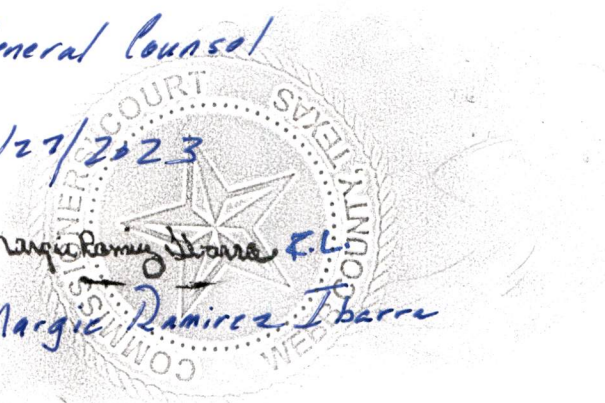 eneral Counsel
/27/2023
Margie Ramirez Ibarra E.L.
Margie Ramirez Ibarra
COMMISSIONERS COURT
WEBB COUNTY TEXAS